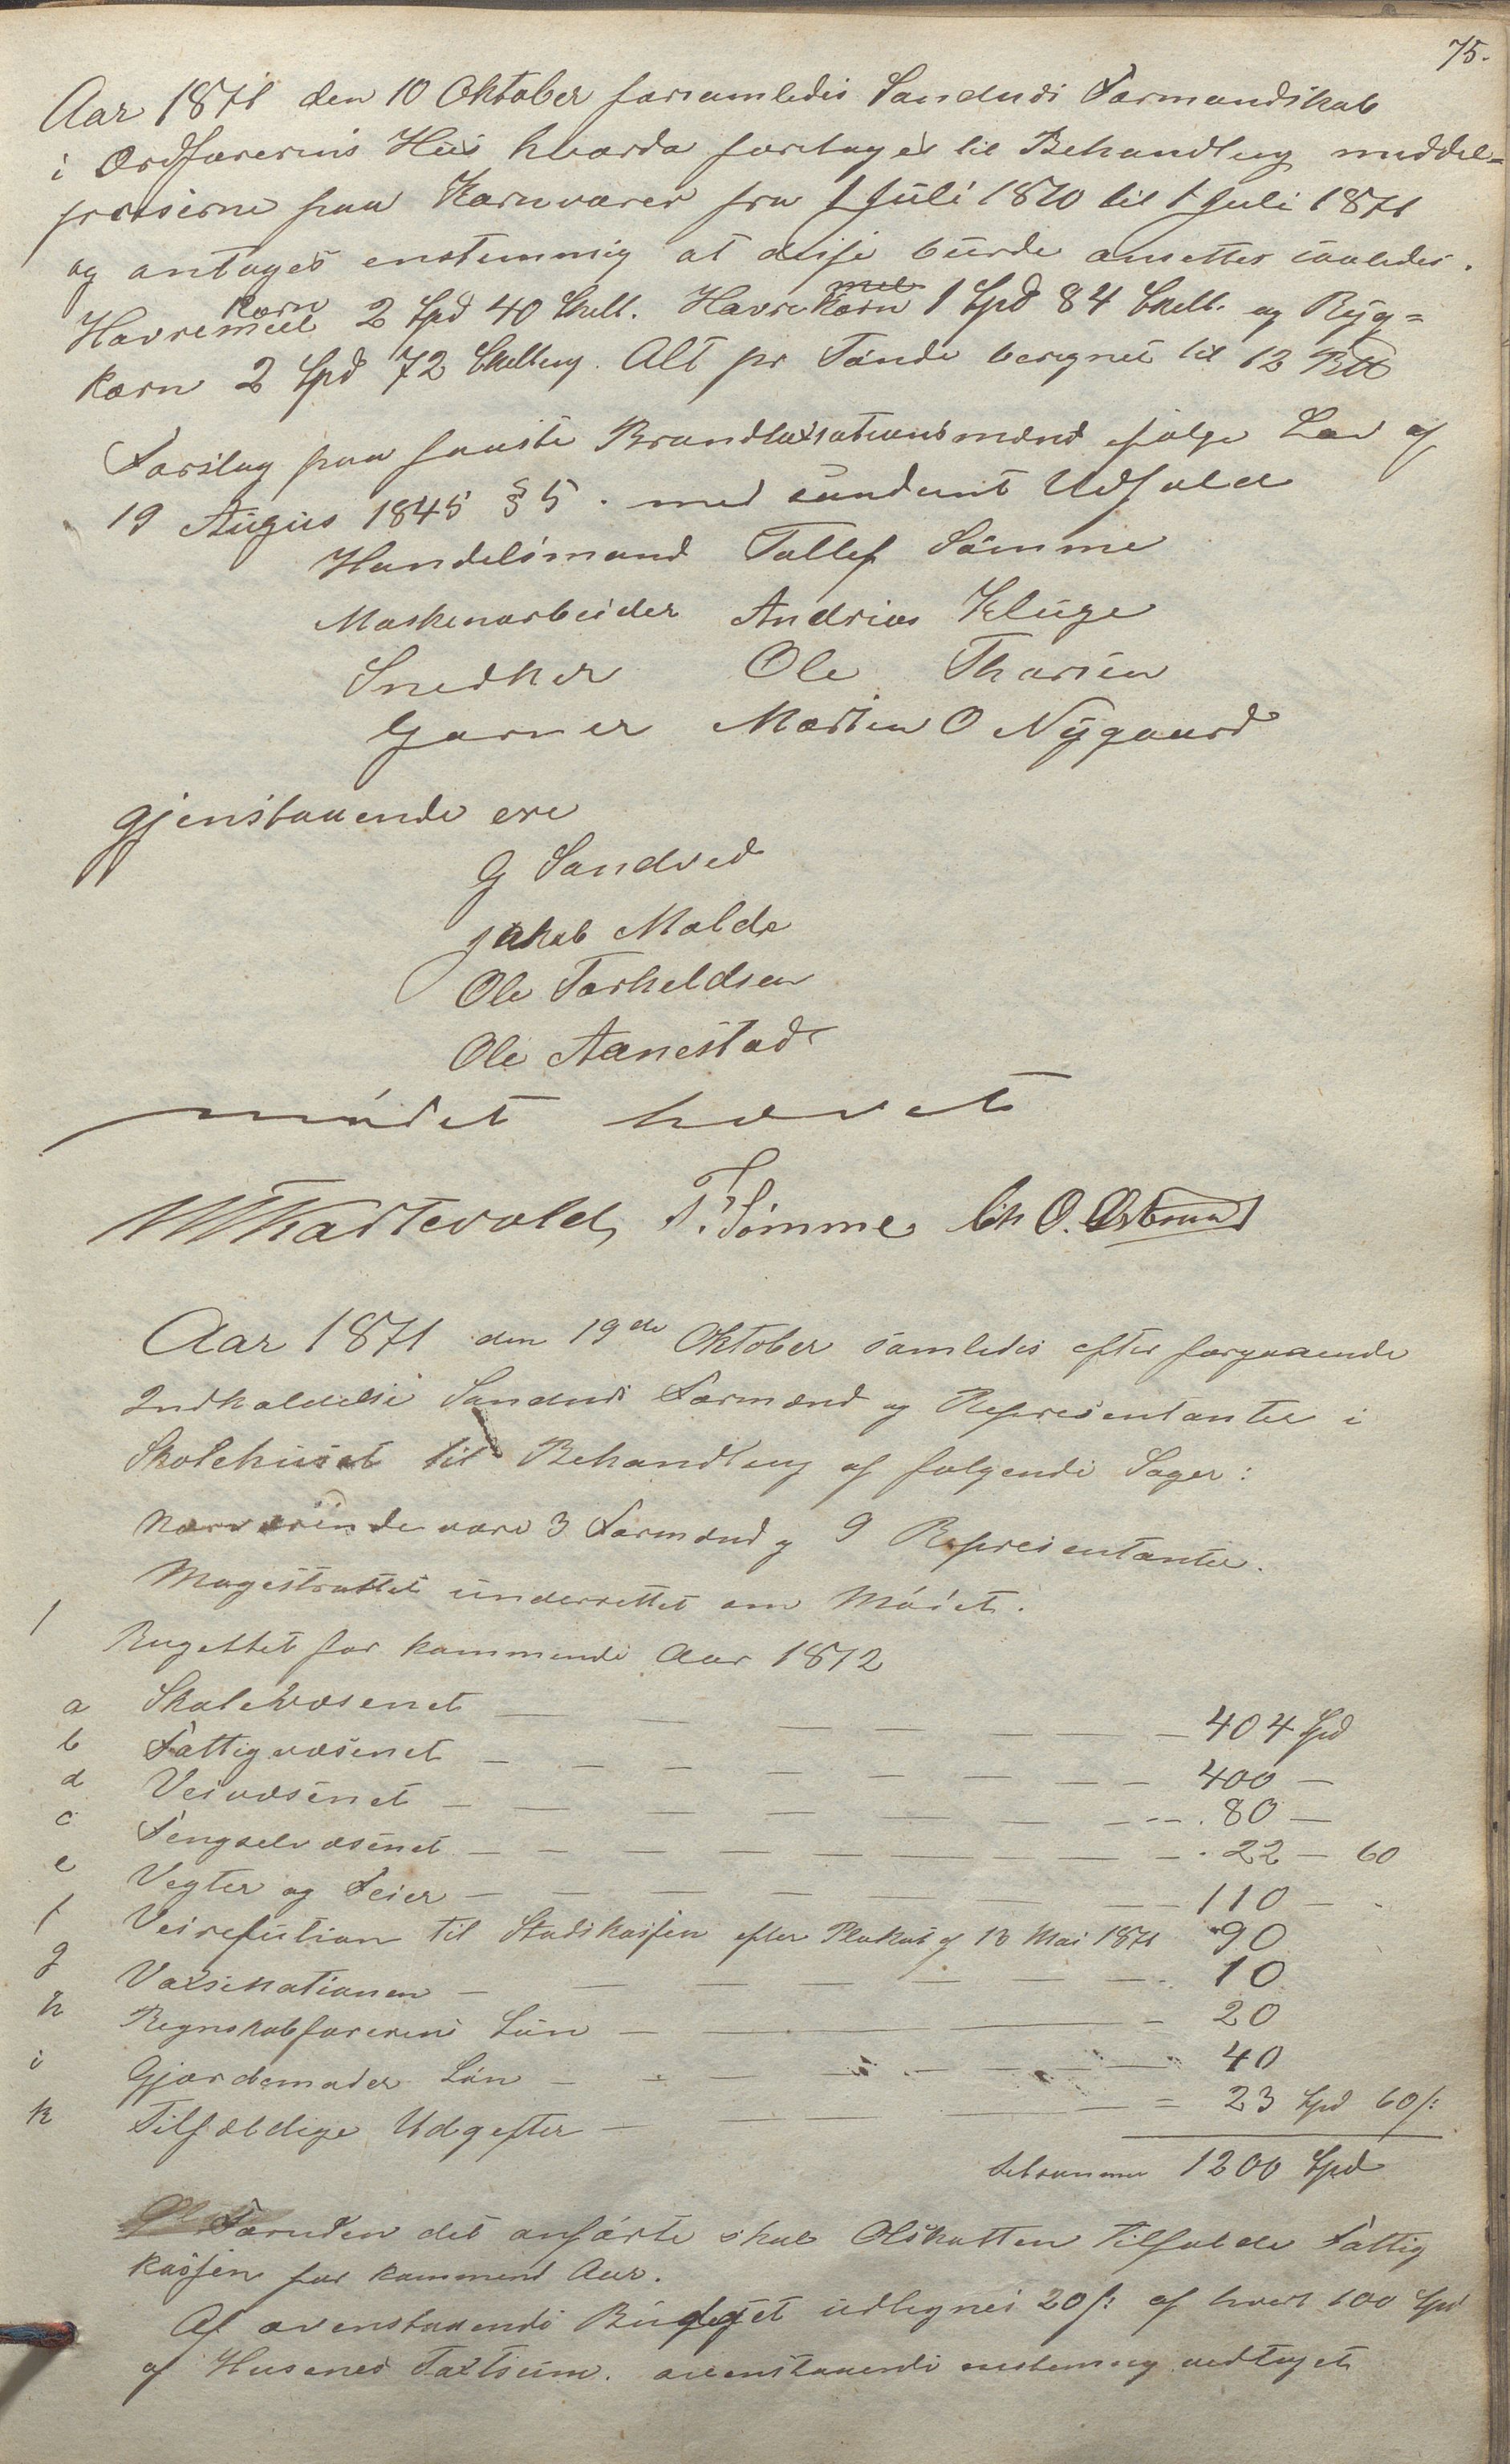 75.
Aar 1871 den 10 Oktober forsamledes Sandnæs Formandskab
i Ordførerens Huus hvorda foretoges til Behandling middel-
priserne paa Kornvarer fra 1 Juli 1870 til 1 Juli 1871
og antages enstemmig at disse burde ansettes saaledes.
Havremeel korn 2 Spd 40 Skill. Havrekorn meel 1 Spd 84 Skill. og Byg-
korn 2 Spd 72 Skilling. Alt pr Tønde beregnet til 12
Forslag paa faaste Brandtaxsationsmænd ifølge Lov af
19 Augus 1845 § 5. med saadant Udfald
Handelsmand Tollef Sømme
Maskenarbeider Andrias Kluge
Snedker Ole Thorsen
Garver Morten O Nygaard
gjenstaaende ere
G Sandved
Jakob Molde
Ole Torkeldsen
Ole Aanestad
mødet hævet
Kartevold, T. Sømme Ch O. Østrand
Aar 1871 den 19de Oktober samledes efter forgaaende
Indkaldelse Sandnæs Formænd og Represientanter i
Skolehuset til Behandling af følgende Sager:
Nærværende vare 3 Formænd og 9 Represientanter.
Magestrattet underrettet om Mødet.
1 Bugettet for kommende Aar 1872
a Skolevæsenet — — — — — — 404 Spd
b Fattigvæsenet — — — — — — 400 —
d Veivæsenet — — — — — — 80 —
c Fengselvæsenet — — — — — — 22 — 60
e Vegter og Feier — — — — — — 110 —
f Veirefution til Stadskassen efter Plakat af 13 Mai 1871 90
g Vaxsinationen — — — — — — 10
h Regnskabførerens Løn — — — 20
i Gjordemoder Løn — — — — — 40
k Tilfældige Udgefter — — — — 23 Spd 60 s:
Subsumma 1200 Spd
Foruden det anførte skal Olskatten tilfalde Fattig
kassen for kommend Aar.
Af ovenstaaende Budget udlignes 20 s: af hvert 100 Spd
af Husenes Taxtsum. ovenstaaende enstemmig vedtaget